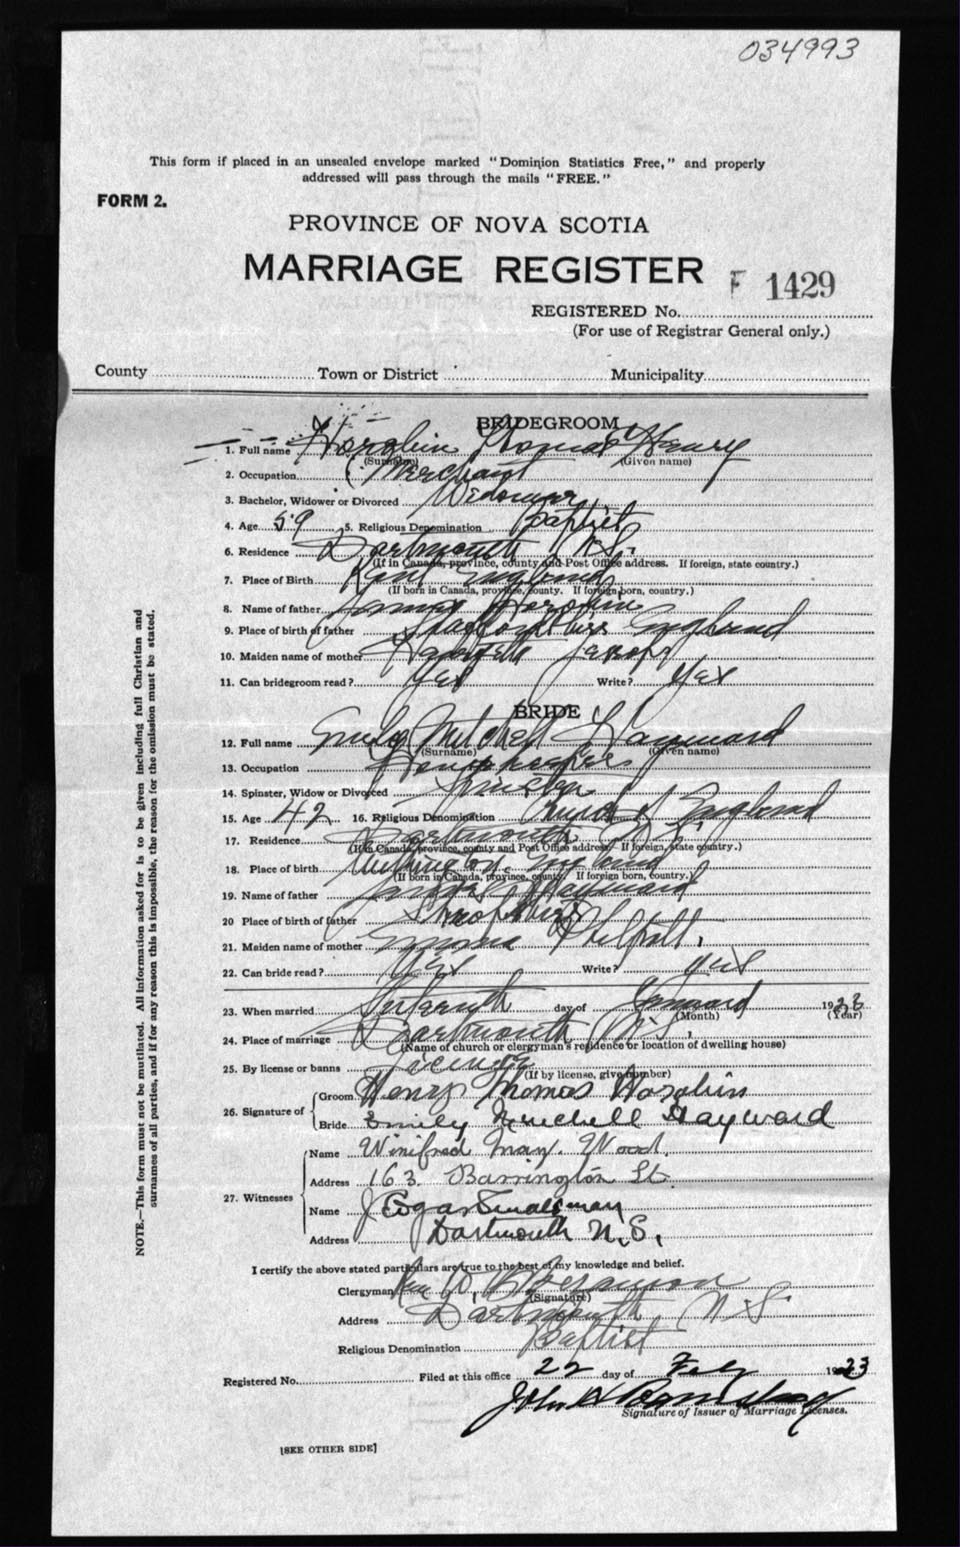 034993
This form if placed in an unsealed envelope marked "Dominion Statistics Free," and properly
addressed will pass through the mails "FREE."
FORM 2.
PROVINCE OF NOVA SCOTIA
MARRIAGE REGISTER
F 1429
REGISTERED No.
(For use of Registrar General only.)
County Town or District Municipality
BRIDEGROOM
1. Full name Horabin Thomas Henry
(Surname) (Given name)
2. Occupation Merchant
3. Bachelor, Widower or Divorced Widower
4. Age 59 5. Religious Denomination Baptist
6. Residence Dartmouth N.S.
(If in Canada, province, county and Post Office address. If foreign, state country.)
7. Place of Birth Kent England
(If born in Canada, province, county. If foreign born, country.)
8. Name of father Horabin
9. Place of birth of father England
10. Maiden name of mother
11. Can bridegroom read? Yes Write? Yes
BRIDE
12. Full name Emily Mitchell Hayward
(Surname) (Given name)
13. Occupation Housekeeper
14. Spinster, Widow or Divorced Spinster
15. Age 42 16. Religious Denomination Church of England
17. Residence Dartmouth N.S.
(If in Canada, province, county and Post Office address. If foreign, state country.)
18. Place of birth England
(If born in Canada, province, county. If foreign born, country.)
19. Name of father Hayward
20 Place of birth of father Shropshire
21. Maiden name of mother Emma
22. Can bride read? Yes Write? yes
23. When married day of 1923
(Month) (Year)
24. Place of marriage Dartmouth N.S.
(Name of church or clergyman's residence or location of dwelling house)
25. By license or banns License
(If by license, give number)
26. Signature of Groom Henry Thomas Horabin
Bride Emily Mitchell Hayward
27. Witnesses Name Winifred May. Wood.
Address 163. Barrington St.
Name J Edgar Smallman
Address Dartmouth N.S.
I certify the above stated particulars are true to the best of my knowledge and belief.
Clergyman
(Signature)
Address Dartmouth N S.
Religious Denomination Baptist
Registered No. Filed at this office 22 day of Feby 1923
John
Signature of Issuer of Marriage Licenses.
[SEE OTHER SIDE]
NOTE.—This form must not be mutilated. All information asked for is to be given including full Christian and
surnames of all parties, and if for any reason this is impossible, the reason for the omission must be stated.